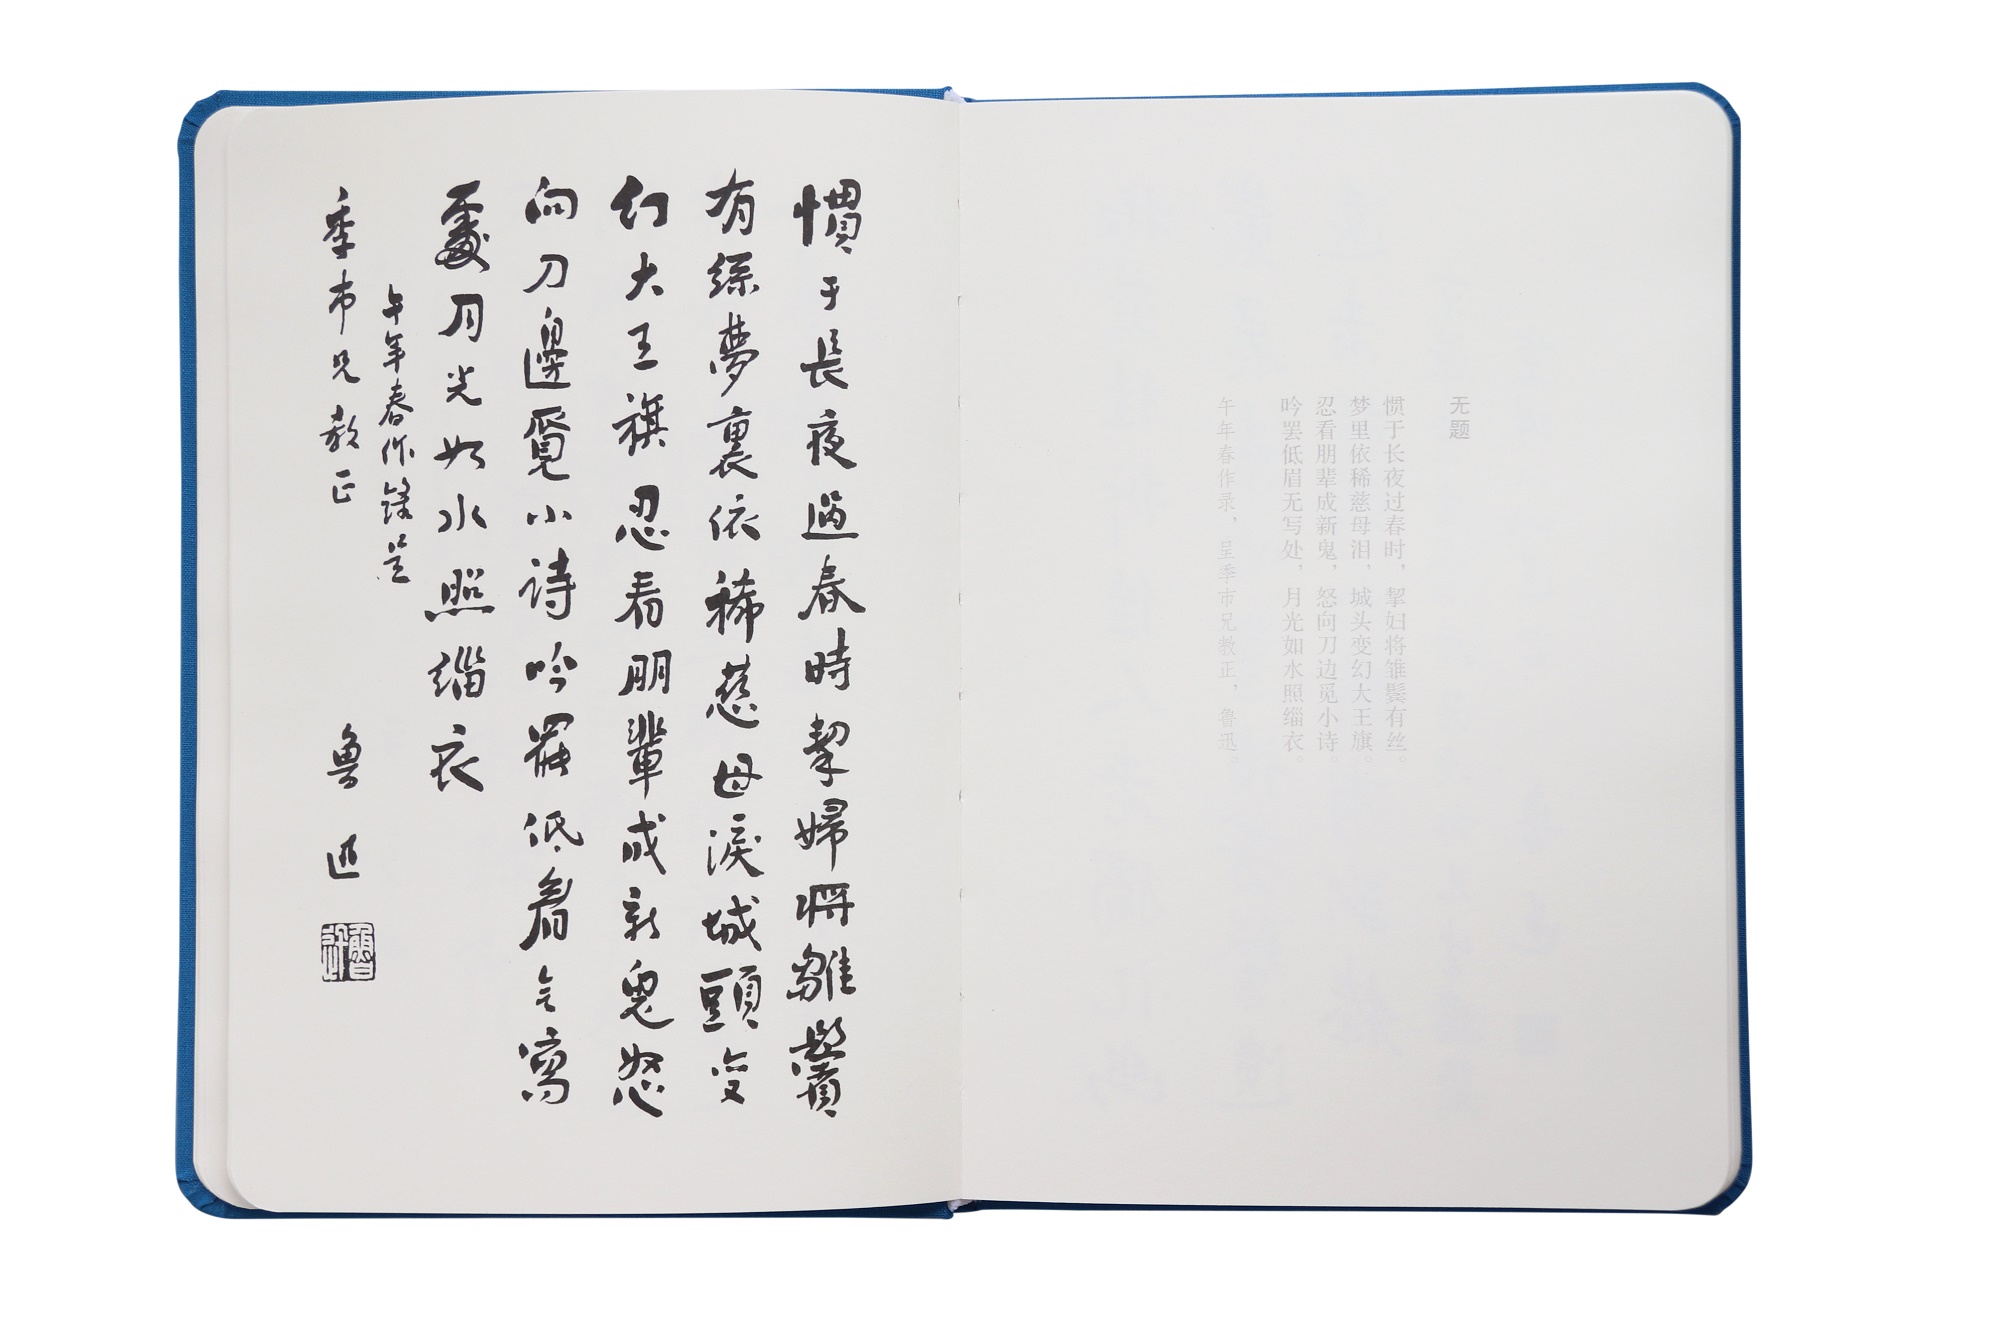 无题
惯于长夜过春时，挈妇将雏鬓有丝。
梦里依稀慈母泪，城头变幻大王旗。
忍看朋辈成新鬼，怒向刀边觅小诗。
吟罢低眉无写处，月光如水照缁衣。
午年春作录，呈季市兄教正，鲁迅。
慣于長夜過春時挈婦將雛鬢
有絲夢裏依稀慈母淚城頭变
幻大王旗忍看朋輩成新鬼怒
向刀邊覓小詩吟罷低眉无寫
處月光如水照緇衣
午年春作錄呈
季市兄教正
魯迅
魯迅